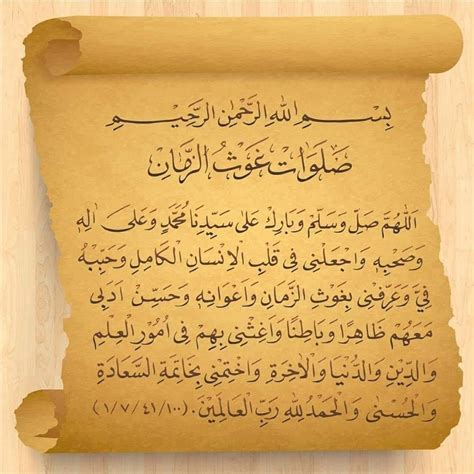 بِسْمِ اللهِ الرَّحْمٰنِ الرَّحِيْمِ
صَلَوَاتْ غَوْثُ الزَّمَانِ
اَللّٰهُمَّ صَلِّ وَسَلِّمْ وَبَارِكْ عَلٰى سَيِّدِنَا مُحَمَّدٍ وَعَلٰى اٰلِهٖ
وَصَحْبِهٖ وَاجْعَلْنِى فِى قَلْبِ الْاِنْسَانِ الْكَامِلِ وَحَبِّبْهُ
فِيَّ وَعَرِّفْنِى بِغَوْثِ الزَّمَانِ وَاَعْوَانِهٖ وَحَسِّنْ اَدَبِى
مَعَهُمْ ظَاهِرًا وَبَاطِنًا وَاَغِثْنِى بِهِمْ فِى اُمُوْرِ الْعِلْمِ
وَالدِّيْنِ وَالدُّنْيَا وَالْاٰخِرَةِ وَاخْتِمْنِى بِخَاتِمَةِ السَّعَادَةِ
وَالْحُسْنٰى وَالْحَمْدُ لِلّٰهِ رَبِّ الْعَالَمِيْنَ. (١/٧/٤١/١٠٠)